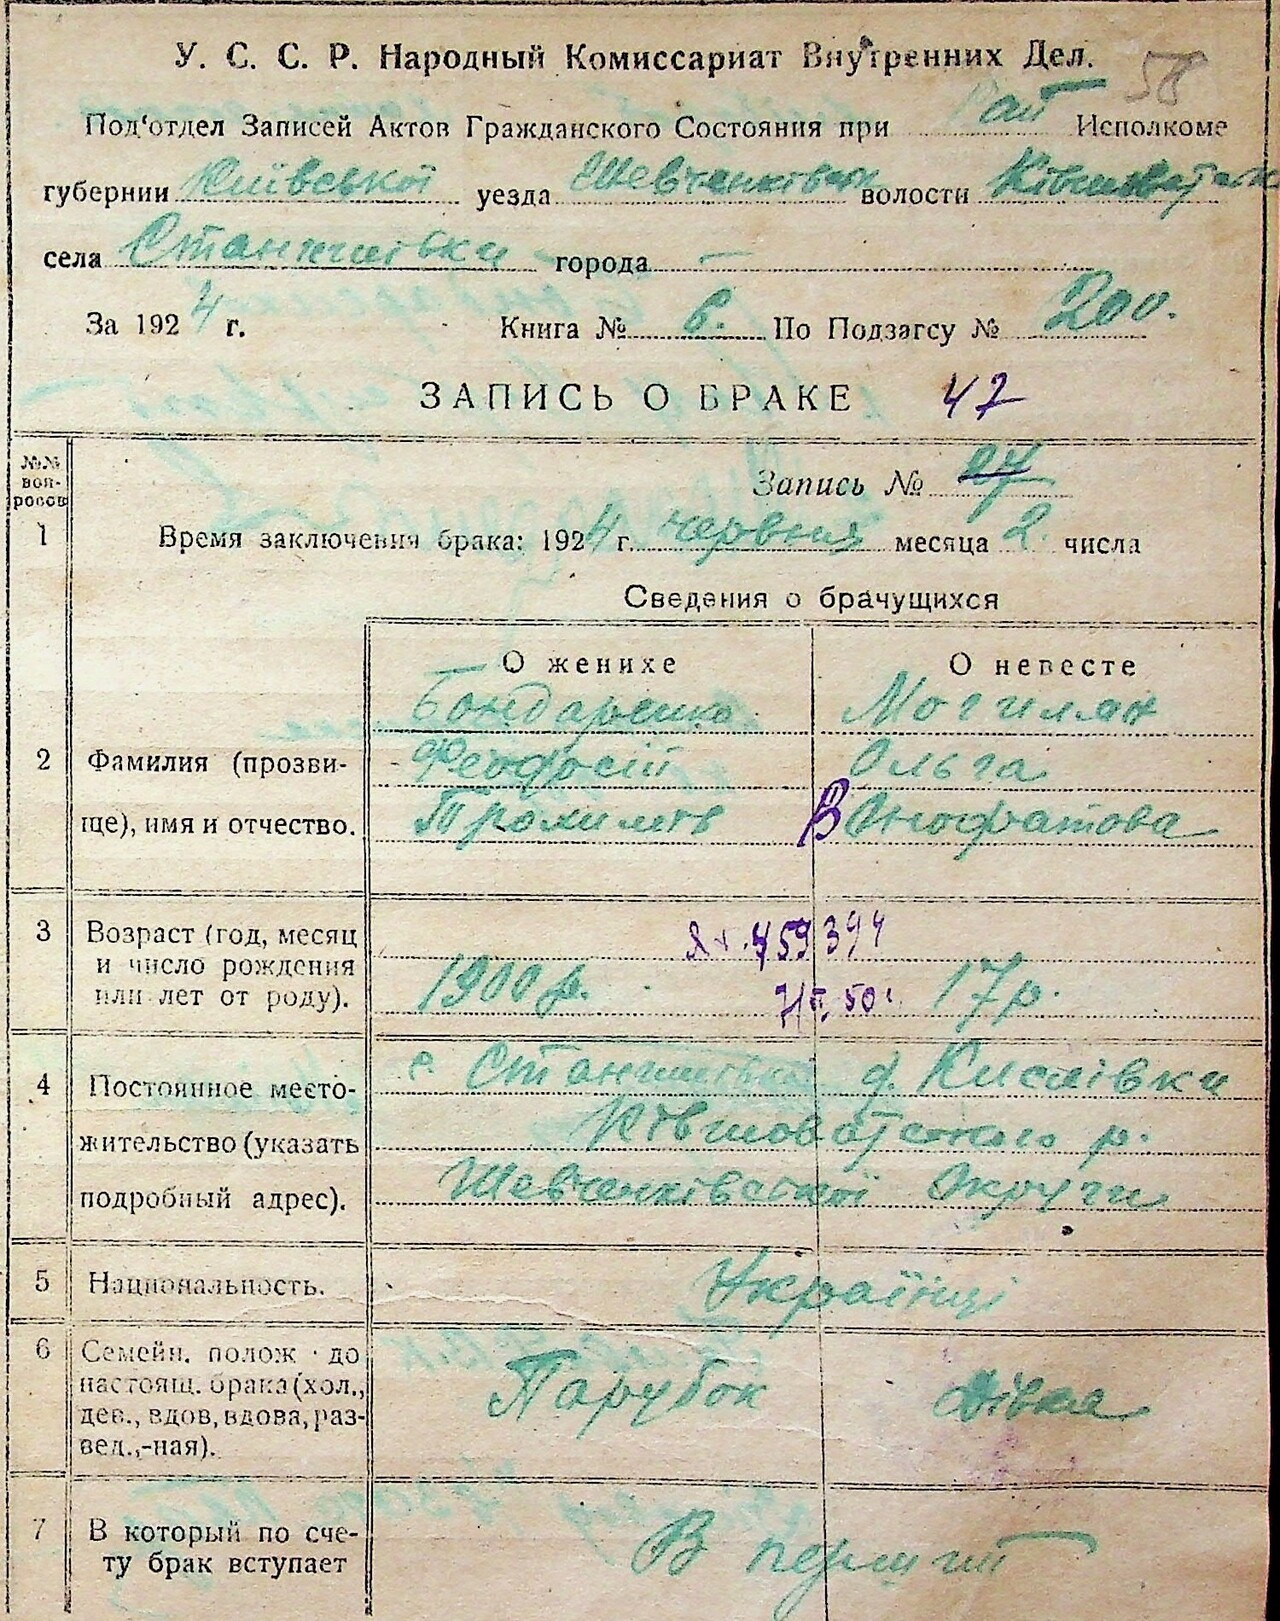 У. С. С. Р. Народный Комиссариат Внутренних Дел.
58
Под'отдел Записей Актов Гражданского Состояния при Рай Исполкоме
губернии Київської уезда Шевченківськ волости Ківшоватськ
села Станишівки города —
За 1924 г. Книга № 6. По Подзагсу № 200.
ЗАПИСЬ О БРАКЕ 47
№№ воп-росов
Запись №
1 Время заключения брака: 1924 г. червня месяца 2. числа
Сведения о брачущихся
О женихе О невесте
Бондаренко Могилян
2 Фамилия (прозви- Феодосій Ольга
ще), имя и отчество. В Онофратова
3 Возраст (год, месяц 459394
и число рождения 1900 р. 17 р.
или лет от роду). 50
4 Постоянное место- с. Станишівка д. Кислівки
жительство (указать Ківшоватського р.
подробный адрес). Шевченківської Округи
5 Национальность. Українці
6 Семейн. полож. до
настоящ. брака (хол., Парубок Дівка
дев., вдов, вдова, раз-
вед.,-ная).
7 В который по сче- В перший
ту брак вступает